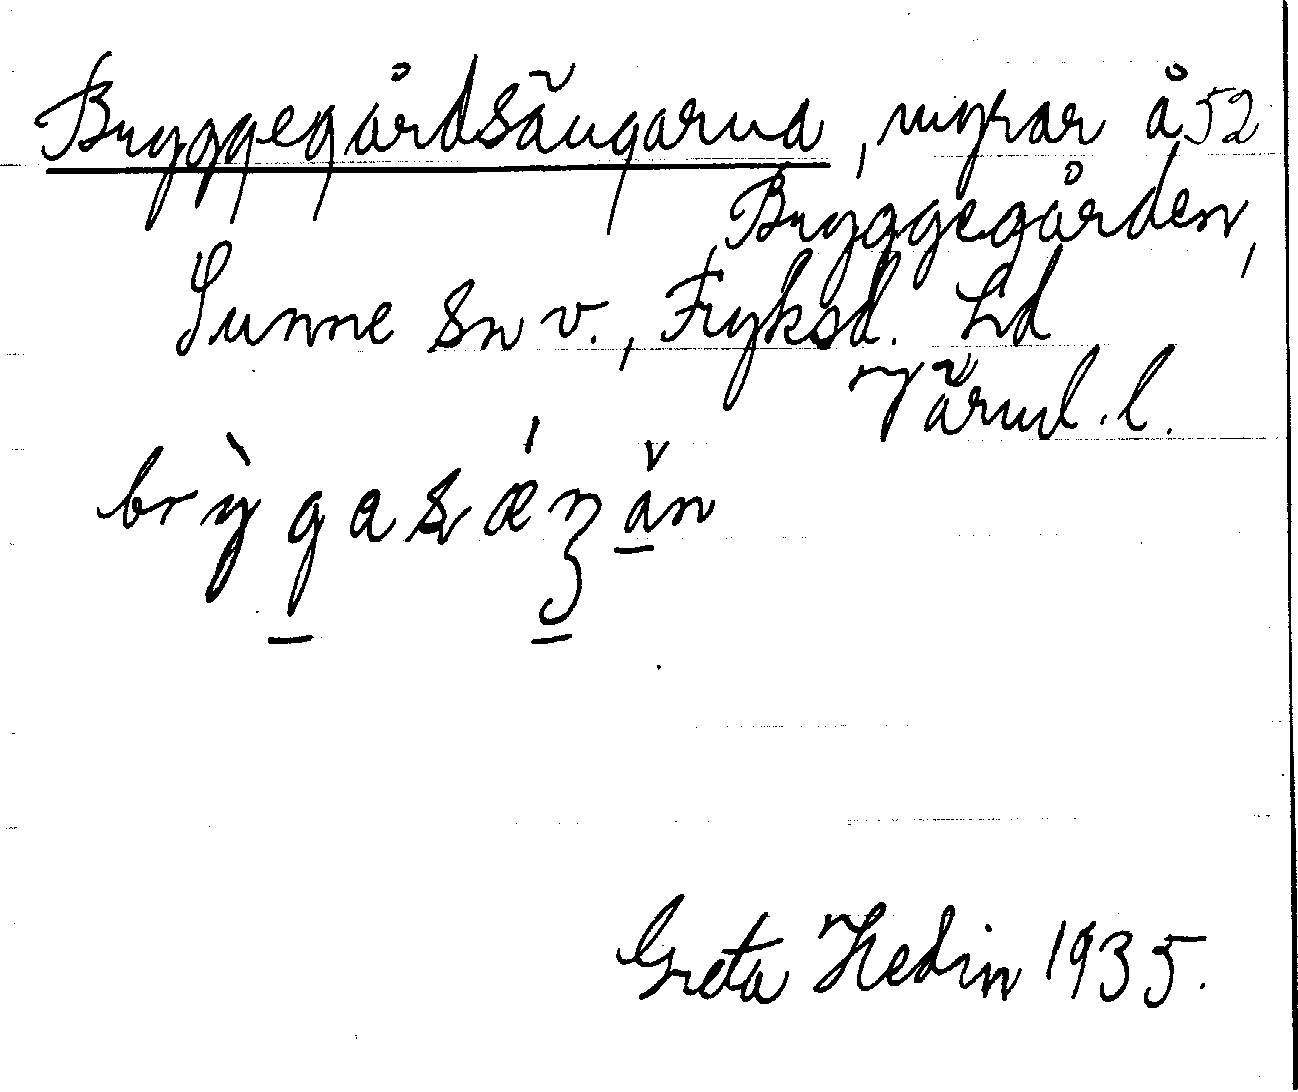 Bryggegårdsängarna, myrar å 52
Bryggegården,
Sunne sn v., Fryksd. hd
Värml. l.
brỳgasǽŋăn
Greta Hedin 1935.